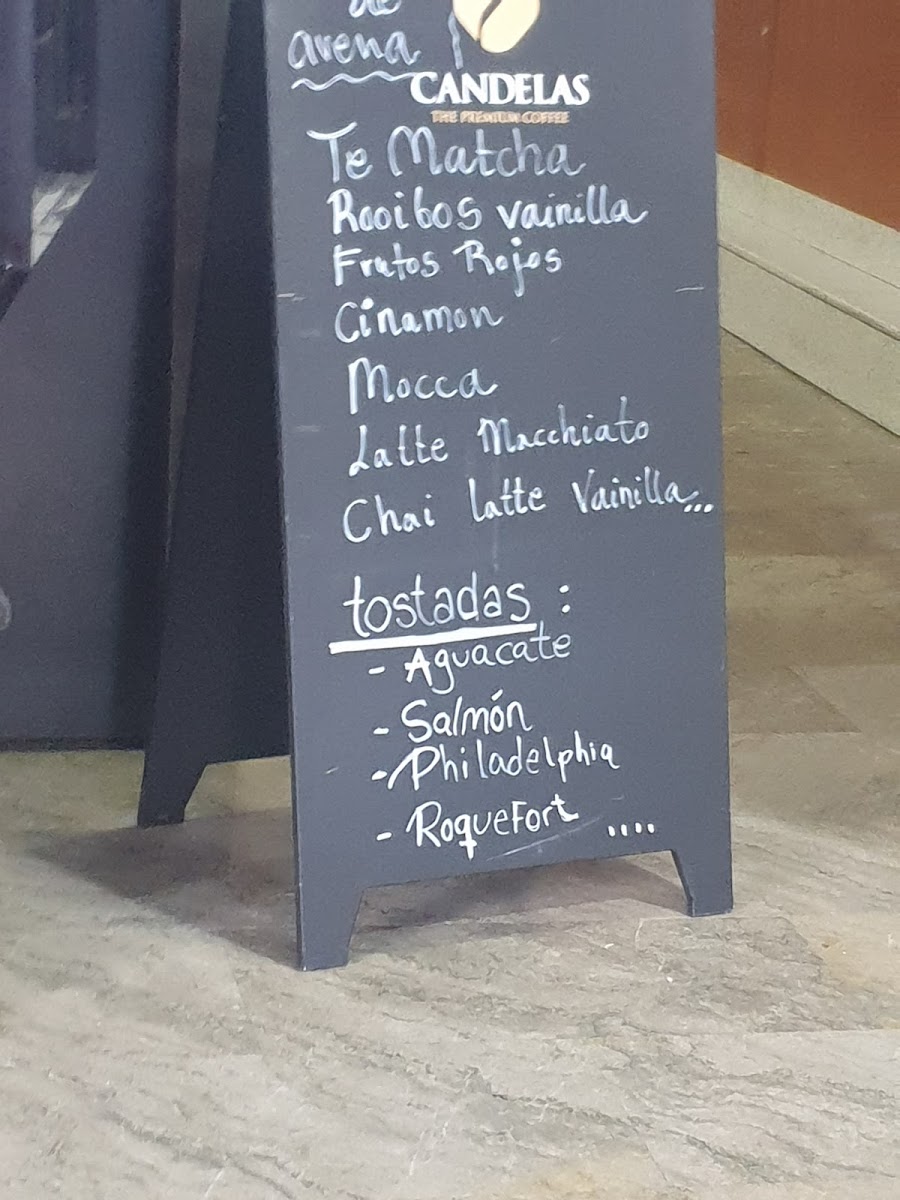 de
arena
CANDELAS
THE PREMIUM COFFEE
Te Matcha
Rooibos vainilla
Frutos Rojos
Cinamon
Mocca
Latte Macchiato
Chai latte Vainilla...
tostadas :
- Aguacate
- Salmón
- Philadelphia
- RoqueFort ....